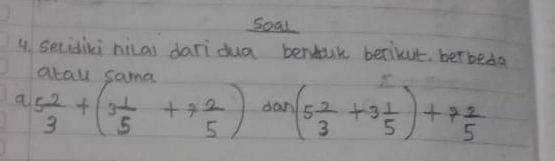 Soal
4. Selidiki nilai dari dua bentuk berikut. berbeda
atau sama
a. 5 2/3 + (3 1/5 + 7 2/5) dan (5 2/3 + 3 1/5) + 7 2/5